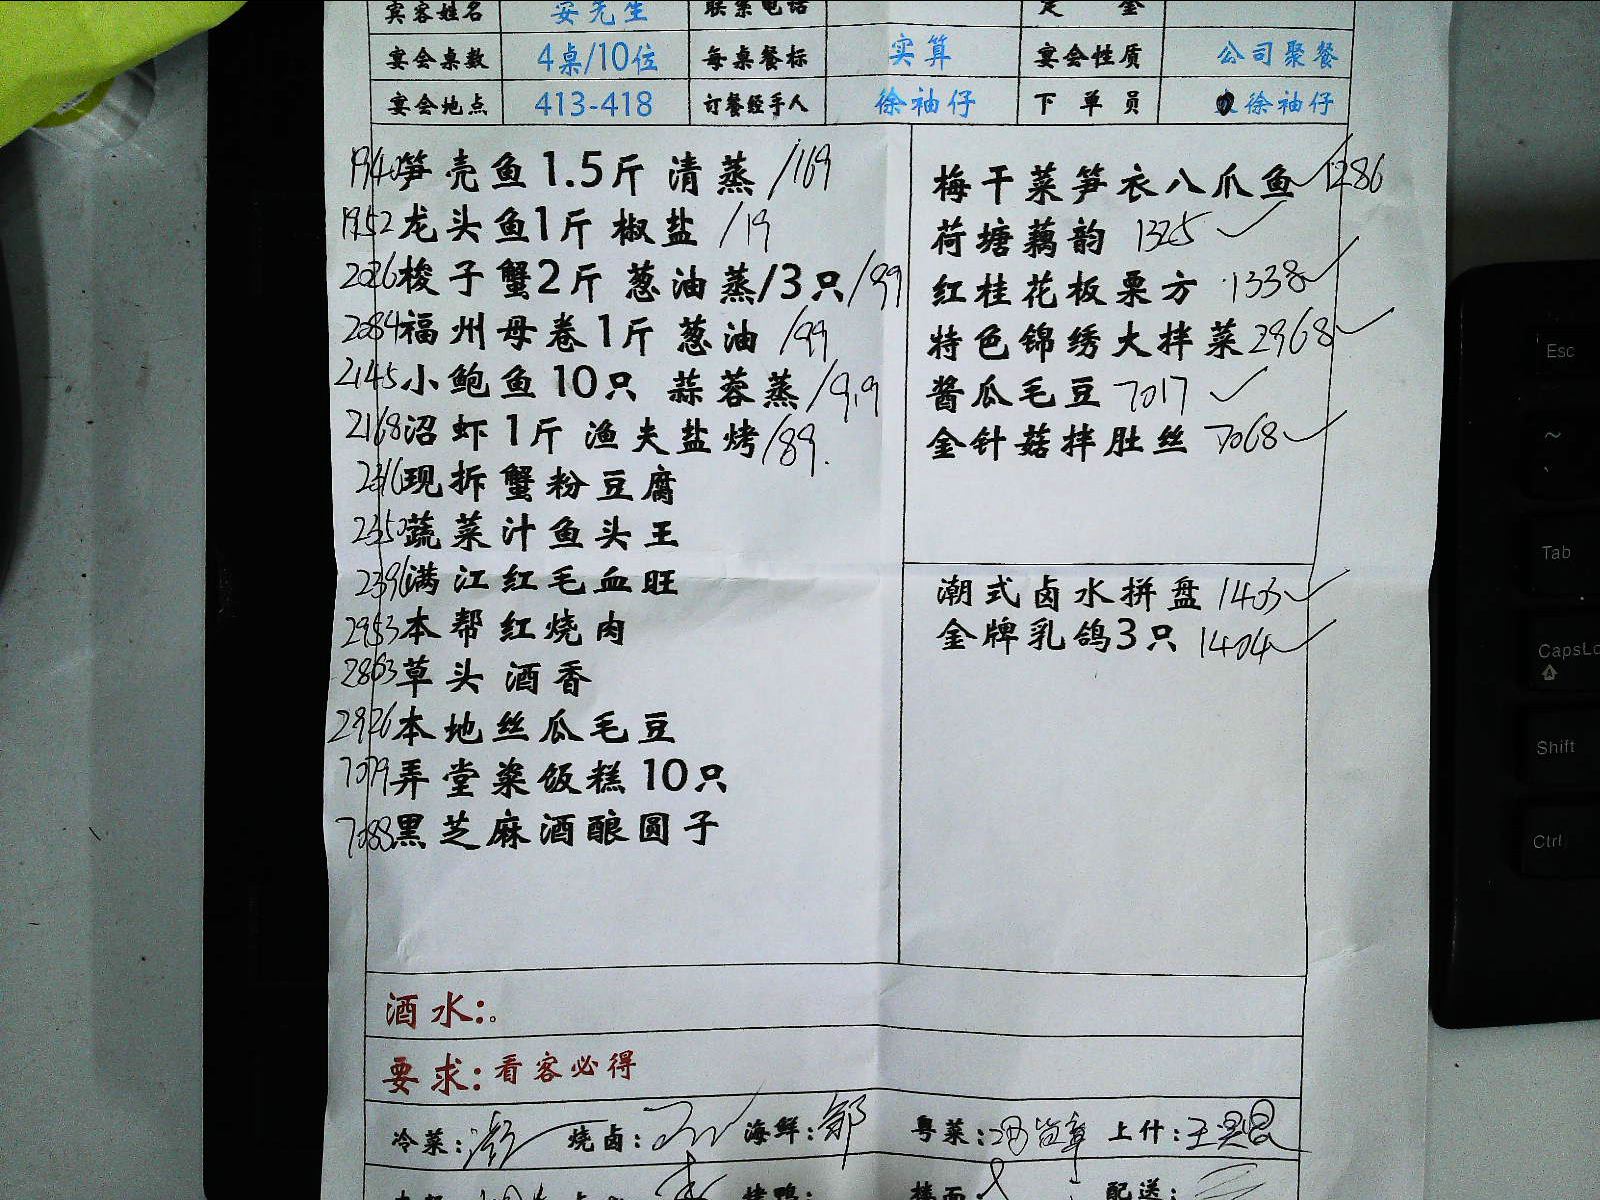 宾客姓名 安先生 联系电话 定 金
宴会桌数 4桌/10位 每桌餐标 实算 宴会性质 公司聚餐
宴会地点 413-418 订餐经手人 徐袖仔 下 单 员 徐袖仔
1940 笋壳鱼1.5斤 清蒸 /169
1952 龙头鱼1斤 椒盐 /19
2026 梭子蟹2斤 葱油蒸/3只 /99
2084 福州母卷1斤 葱油 /99
2145 小鲍鱼10只 蒜蓉蒸 /9.9
2168 沼虾1斤 渔夫盐烤 /89.
2316 现拆蟹粉豆腐
2350 蔬菜汁鱼头王
2396 满江红毛血旺
2953 本帮红烧肉
2863 草头 酒香
2926 本地丝瓜毛豆
7079 弄堂粢饭糕10只
7088 黑芝麻酒酿圆子
梅干菜笋衣八爪鱼 1286
荷塘藕韵 1325
红桂花板栗方 1338
特色锦绣大拌菜 2968
酱瓜毛豆 7017
金针菇拌肚丝 7068
潮式卤水拼盘 1403
金牌乳鸽3只 1404
酒水:。
要求:看客必得
冷菜: 烧卤: 海鲜:邹 粤菜: 上什:
烤鸭: 楼面 配送:
Esc
~
Tab
CapsLo
Shift
Ctrl